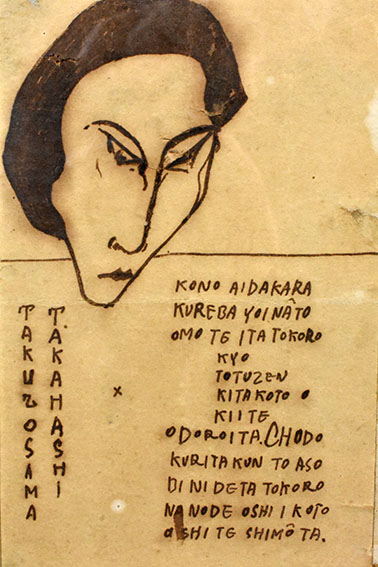 TAKAHASHI
TAKUZOSAMA
×
KONO AIDAKARA
KUREBA YOI NÂTO
OMO TE ITA TOKORO
KYO
TOTUZEN
KITA KOTO O
KIITE
ODOROITA. CHODO
KURITA KUN TO ASO
BI NI DETA TOKORO
NA NODE OSHI I KOTO
O SHI TE SHIMÔTA.